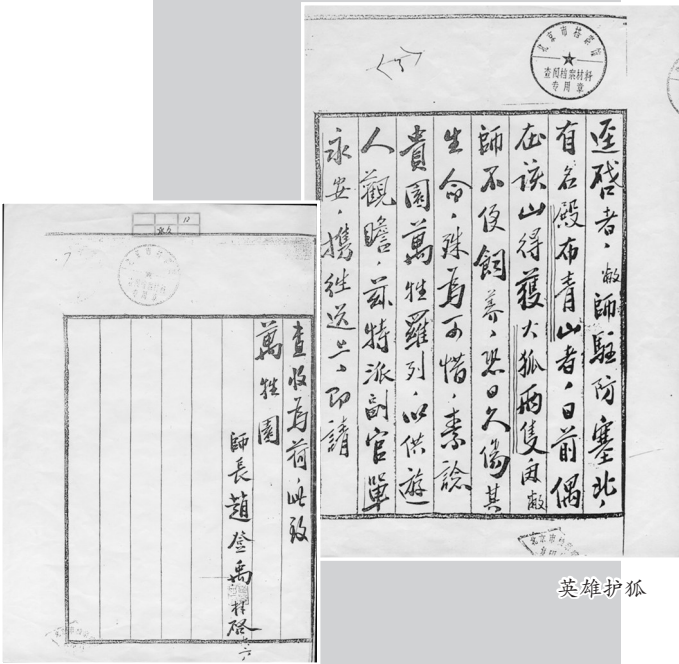 北京市档案馆
查阅档案材料
专用章
逕啓者，敝師駐防塞北，
有名殿布青山者，日前偶
在該山得獲火狐兩隻，因敝
師不便飼養，恐日久傷其
生命，殊為可惜，素諗
貴園萬牲羅列，以供遊
人觀瞻，兹特派副官單
永安，攜往送上，即請
查收為荷，此致
萬牲園
師長趙登禹拜啓
英雄护狐